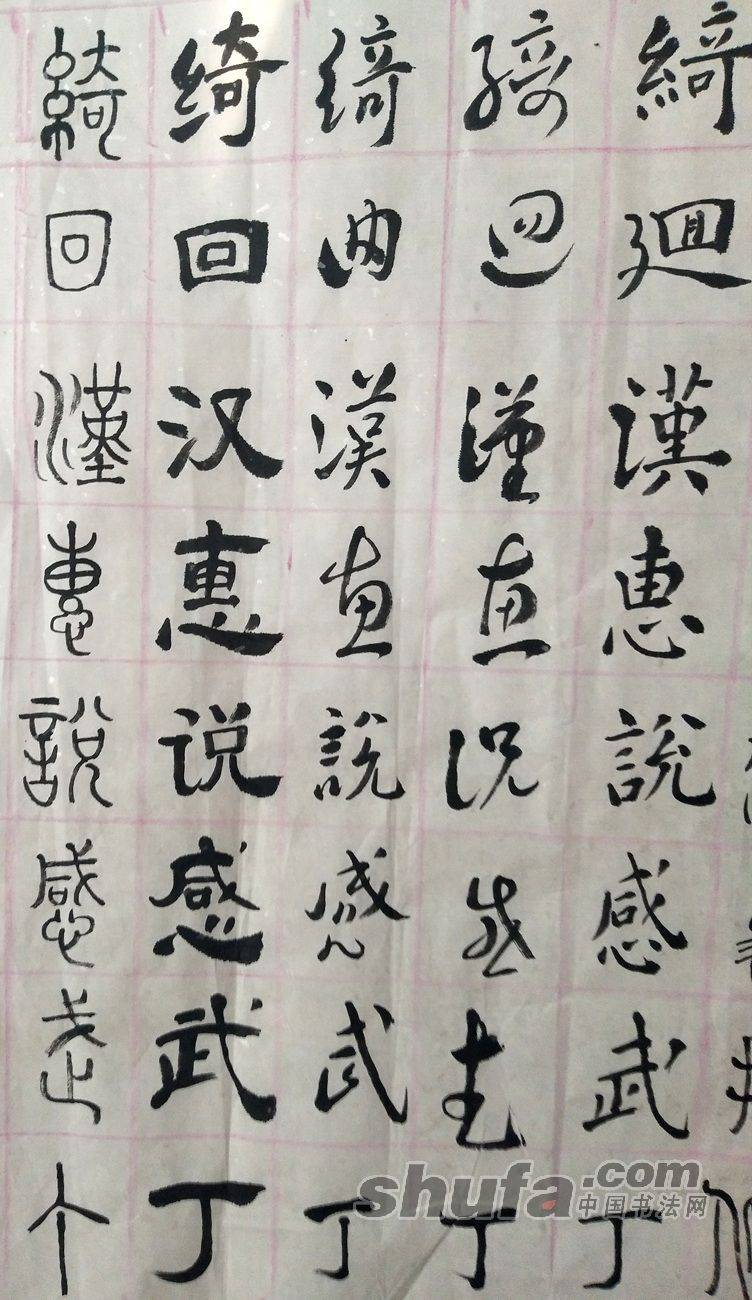 綺廻漢惠說感武丁
綺迴漢惠说感武丁
綺回漢惠說感武丁
绮回汉惠说感武丁
綺回漢惠說感武丁
shufa.com
中国书法网